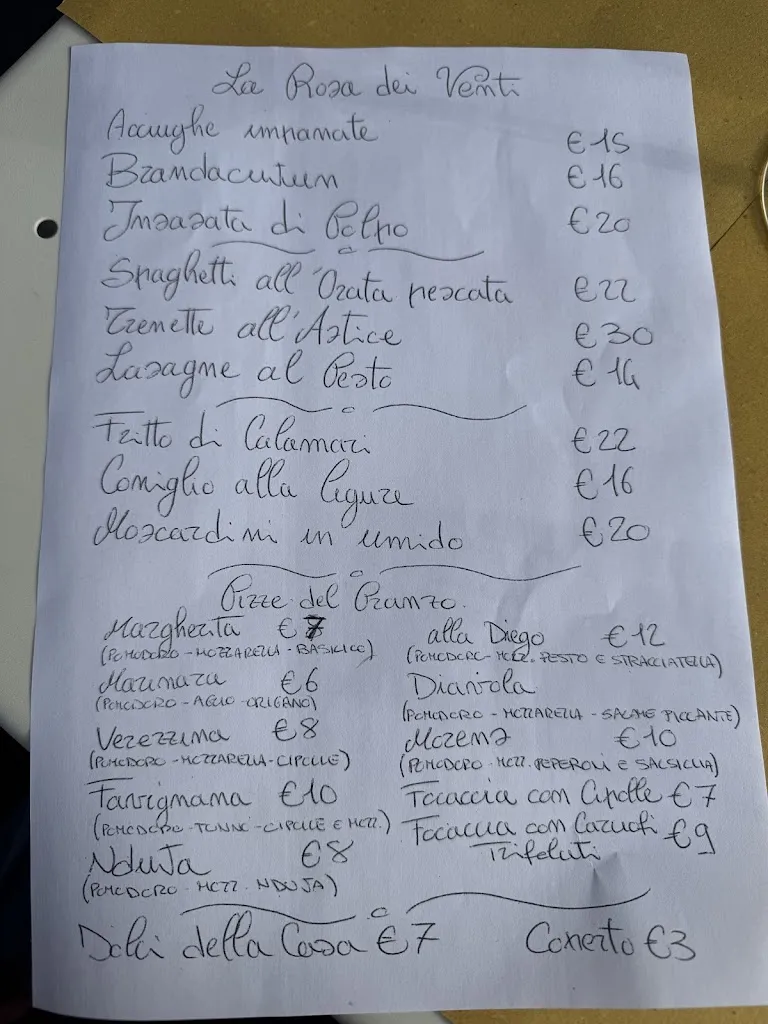 La Rosa dei Venti
Acciughe impanate €15
Brandacujun €16
Insalata di Polpo €20
Spaghetti all'Orata pescata €22
Trenette all'Astice €30
Lasagne al Pesto €14
Fritto di Calamari €22
Coniglio alla ligure €16
Moscardini in umido €20
Pizze del Pranzo
Margherita € 7
(POMODORO - MOZZARELLA - BASILICO)
Marinara €6
(POMODORO - AGLIO - ORIGANO)
Verezzina €8
(POMODORO - MOZZARELLA - CIPOLLE)
Farignana €10
(POMODORO - TONNO - CIPOLLE E MOZZ.)
NDUJA €8
(POMODORO - MOZZ. NDUJA)
alla Diego €12
(POMODORO - MOZZ. PESTO E STRACCIATELLA)
Diavola
(POMODORO - MOZZARELLA - SALAME PICCANTE)
Morena €10
(POMODORO - MOZZ. PEPERONI E SALSICCIA)
Focaccia con Cipolle €7
Focaccia con Carciofi €9
Trifolati
Dolci della Casa €7
Coperto €3